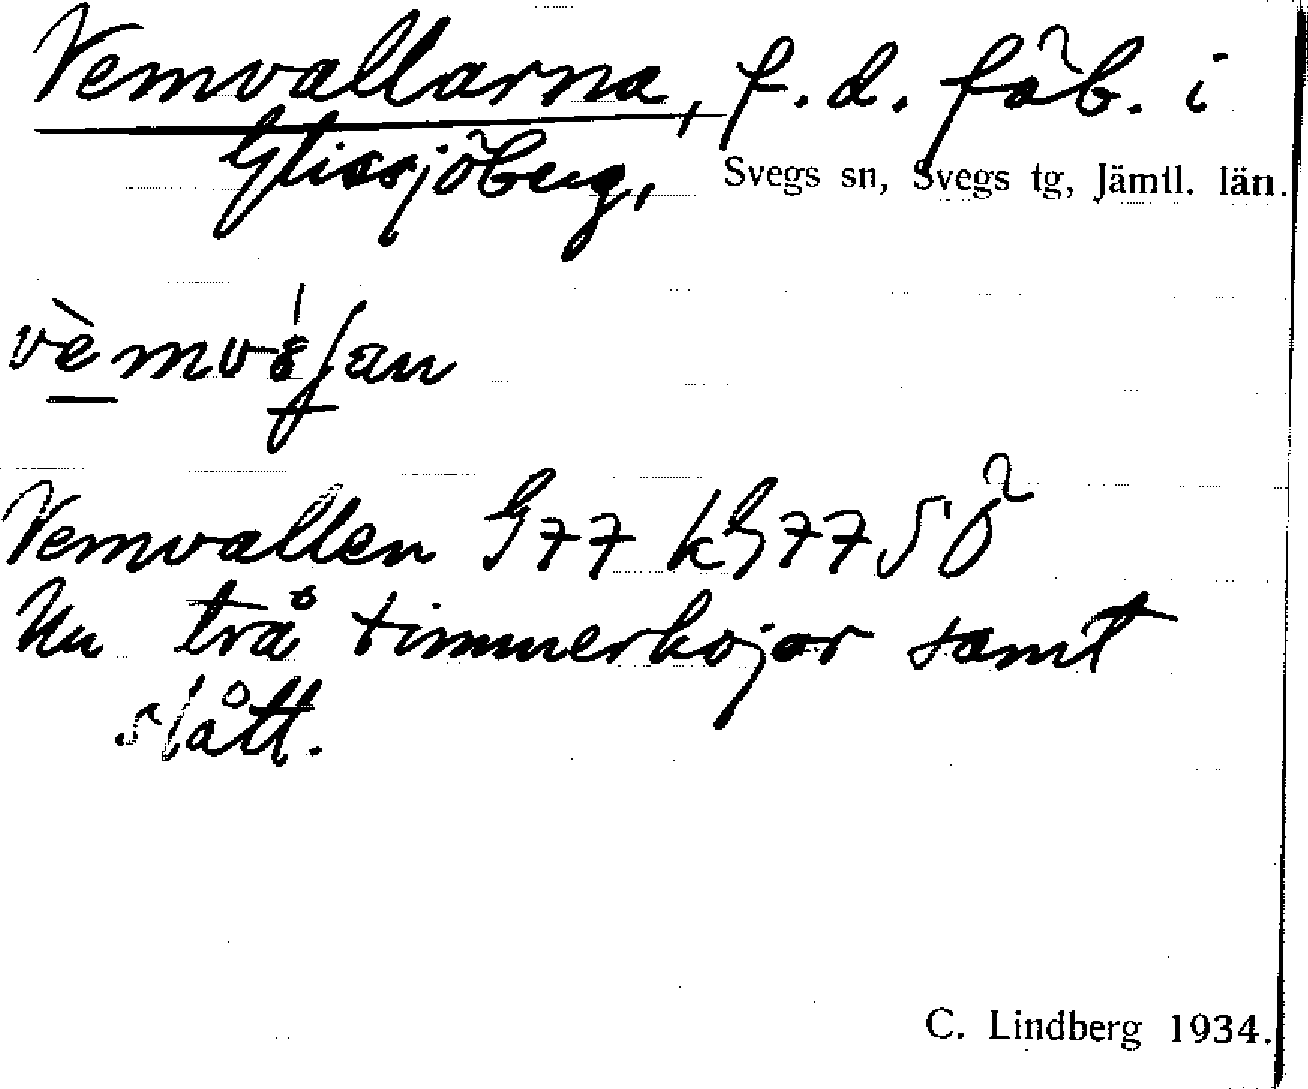 Vemvallarna, f. d. fäb. i
Glissjöberg, Svegs sn, Svegs tg, Jämtl. län.
Vemvallen G77 kG77SÖ
Nu två timmerkojor samt
slått.
C. Lindberg 1934.